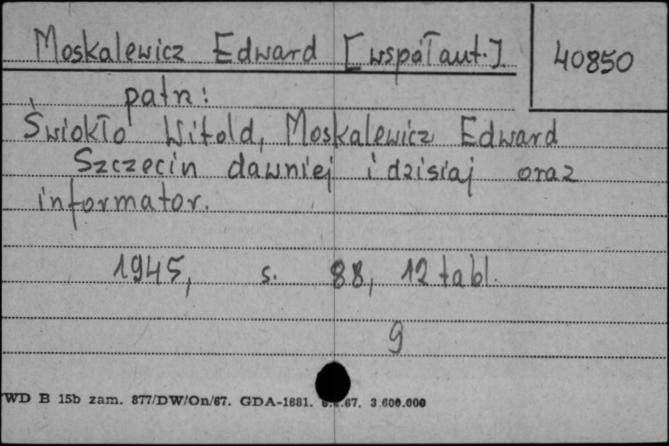 Moskalewicz Edward [współaut.].
40850
patrz:
Świokło Witold, Moskalewicz Edward
Szczecin dawniej i dzisiaj oraz
informator.
1945, s. 88, 12 tabl.
9
WD B 15b zam. 877/DW/On/67. GDA-1681. 67. 3.600.000